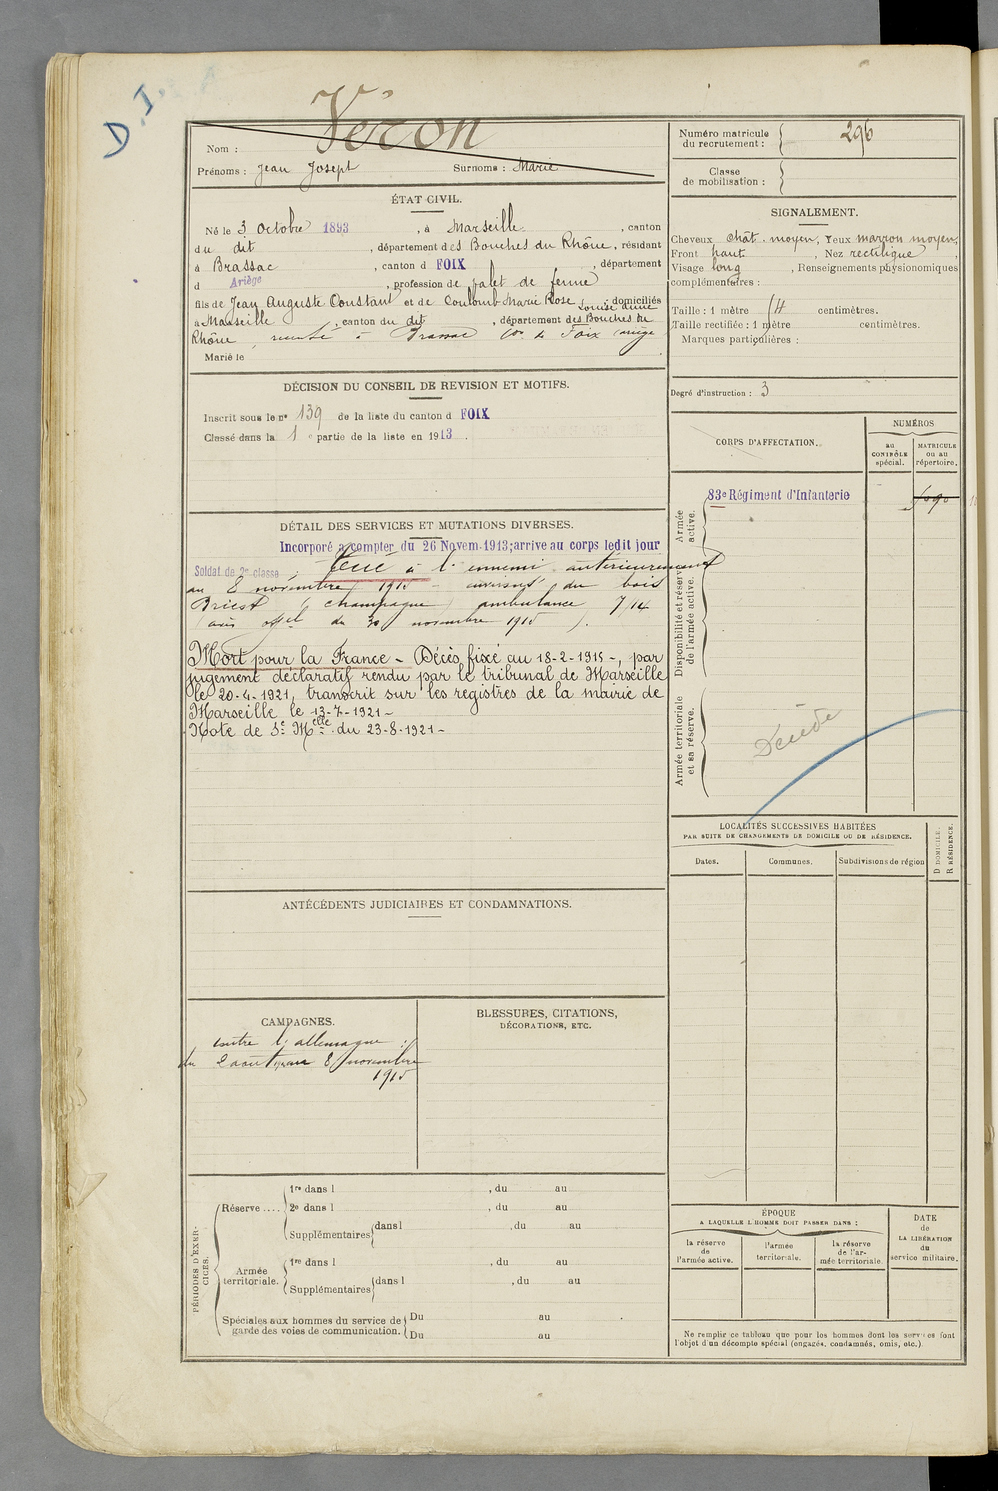 D.I.
Véron
Nom :
Prénoms : Jean Joseph Surnoms : Marie
Numéro matricule
du recrutement : 296
Classe
de mobilisation :
ÉTAT CIVIL.
Né le 3 Octobre 1893, à Marseille, canton
du dit, département des Bouches du Rhône, résidant
à Brassac, canton d FOIX, département
d Ariège, profession de valet de ferme
fils de Jean Auguste Constant et de Coulomb Marie Rose Louise Anne, domiciliés
à Marseille, canton du dit, département des Bouches du
Rhône, à Brassac Con de Foix Ariège
Marié le
SIGNALEMENT.
Cheveux chât. moyen, Yeux marron moyen,
Front haut, Nez rectiligne,
Visage long, Renseignements physionomiques
complémentaires :
Taille : 1 mètre centimètres.
Taille rectifiée : 1 mètre centimètres.
Marques particulières :
Degré d'instruction : 3
DÉCISION DU CONSEIL DE REVISION ET MOTIFS.
Inscrit sous le n° 139 de la liste du canton d FOIX
Classé dans la 1e partie de la liste en 1913.
CORPS D'AFFECTATION.
NUMÉROS
au
CONTRÔLE
spécial.
MATRICULE
ou au
répertoire.
Armée
active.
83e Régiment d'Infanterie
Disponibilité et réserve
de l'armée active.
Armée territoriale
et sa réserve.
Décédé
DÉTAIL DES SERVICES ET MUTATIONS DIVERSES.
Incorporé à compter du 26 Novem. 1913; arrivé au corps ledit jour
Soldat de 2e classe. Tué à l'ennemi antérieurement
au 8 novembre 1915 - environs du bois
Briest (champagne) ambulance 7/14
(avis offel du 30 novembre 1915).
Mort pour la France - Décès fixé au 18-2-1915-, par
jugement déclaratif rendu par le tribunal de Marseille
le 20-4-1921, transcrit sur les registres de la mairie de
Marseille le 13-7-1921-
Note de Se Melle du 23-8-1921-
LOCALITÉS SUCCESSIVES HABITÉES
PAR SUITE DE CHANGEMENTS DE DOMICILE OU DE RÉSIDENCE.
Dates.
Communes.
Subdivisions de région
D DOMICILE.
R RÉSIDENCE.
ANTÉCÉDENTS JUDICIAIRES ET CONDAMNATIONS.
CAMPAGNES.
contre l'allemagne :
du 2 août au 8 novembre
1915
BLESSURES, CITATIONS,
DÉCORATIONS, ETC.
PÉRIODES D'EXER-
CICES.
Réserve ....
1re dans l , du au
2e dans l , du au
Supplémentaires dans l , du au
Armée
territoriale.
1re dans l , du au
Supplémentaires dans l , du au
Spéciales aux hommes du service de
garde des voies de communication.
Du au
Du au
ÉPOQUE
A LAQUELLE L'HOMME DOIT PASSER DANS :
la réserve
de
l'armée active.
l'armée
territoriale.
la réserve
de l'ar-
mée territoriale.
DATE
de
LA LIBÉRATION
du
service militaire.
Ne remplir ce tableau que pour les hommes dont les services font
l'objet d'un décompte spécial (engagés, condamnés, omis, etc.)